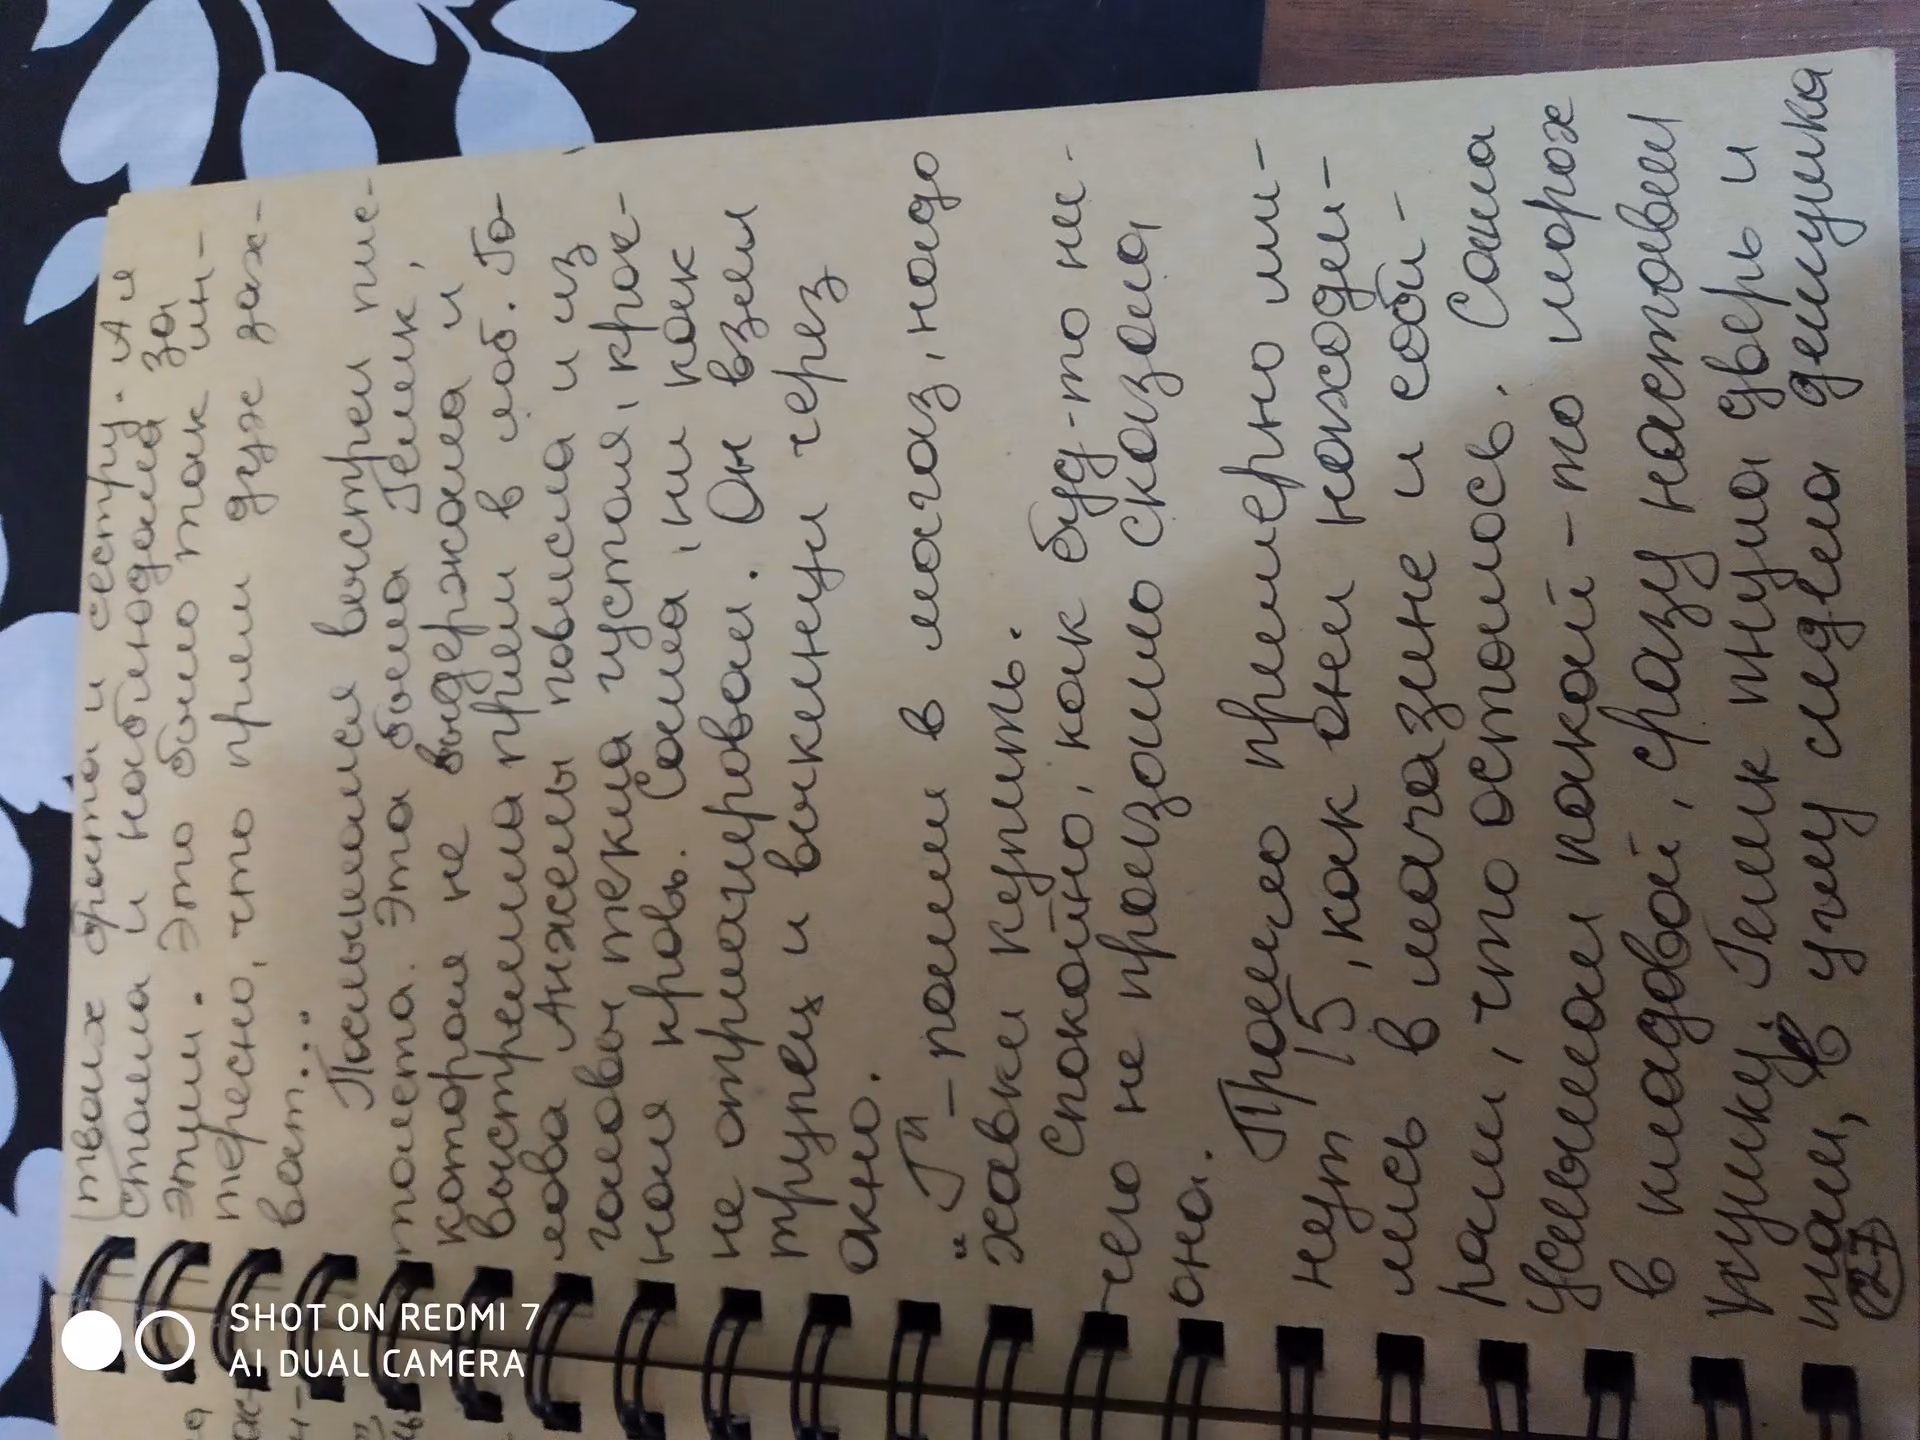 твоих брата и сестру. А я
стояла и наблюдала за
этим. Это было так ин-
тересно, что прям дух зах-
ват...
Послышался выстрел пис-
толета. Это была Гелик,
которая не выдержала и
выстрелила прям в лоб. Го-
лова Анжелы повисла и из
головы текла густая, крас-
ная кровь. Саша, ни как
не отреагировал. Он взял
труп и выкинул через
окно.
"Г" - пошли в магаз, надо
хавки купить.
Спокойно, как буд-то ни-
чего не произошло сказала
она.
Прошло примерно ми-
нут 15, как они находи-
лись в магазине и соби-
рали, что осталось. Саша
услышал какой-то шорох
в кладовой, сразу наставил
пушку. Гелик пнула дверь и
там, в углу сидела девушка
27
SHOT ON REDMI 7
AI DUAL CAMERA